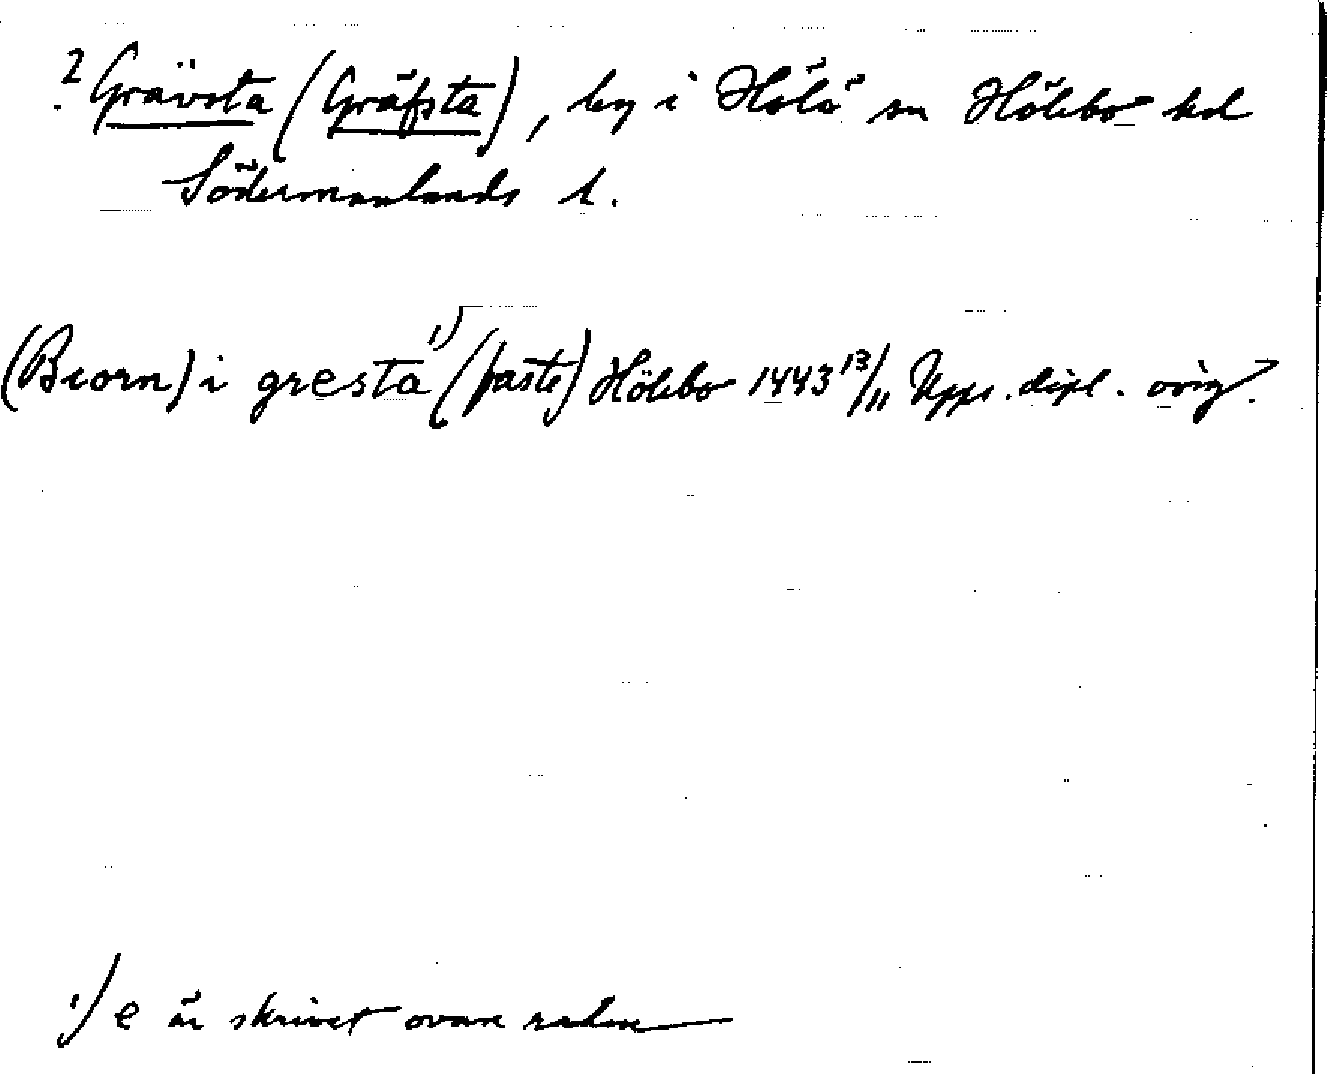 ? Grävsta (Gräfsta), by i Hölö sn Hölebo hd
Södermanlands l.
(Biorn) i gresta ¹⁾ (faste) Hölebo 1443 13/11 Upps. dipl. orig.
¹⁾ e är skrivet ovan raden